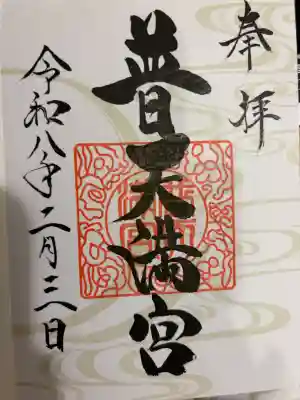 奉拝
普天満宮
令和八年二月三日